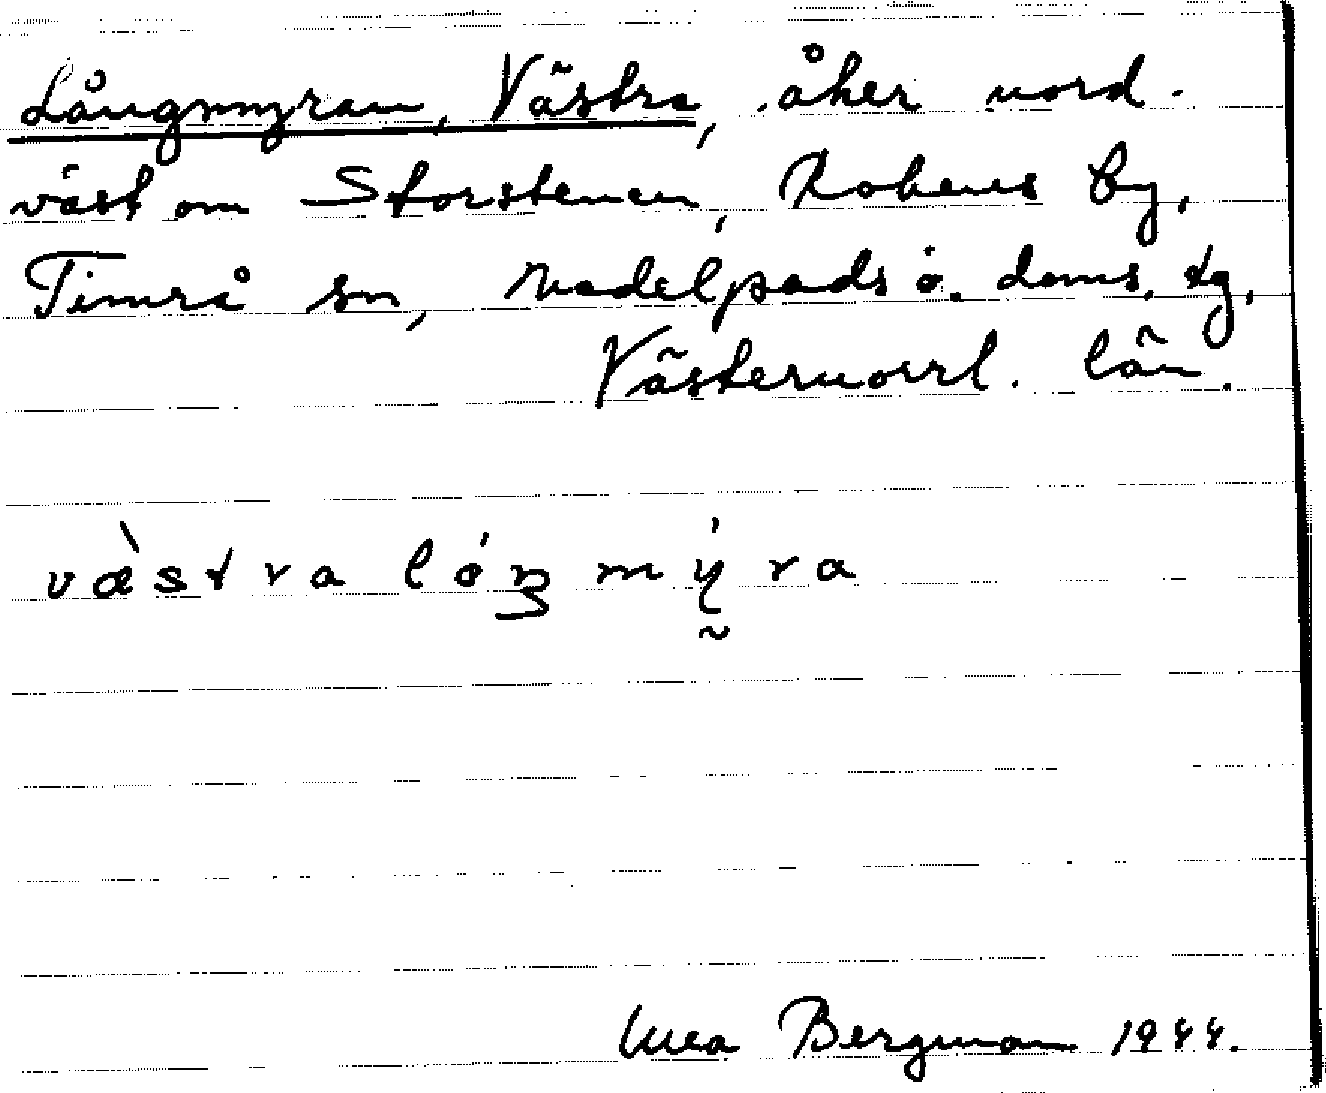 Långmyran, Västra, åker nord-
väst om Storstenen, Robens by,
Timrå sn, Medelpads ö. doms. tg,
Västernorrl. län.
västra lóŋmýra
Bergman 1944.